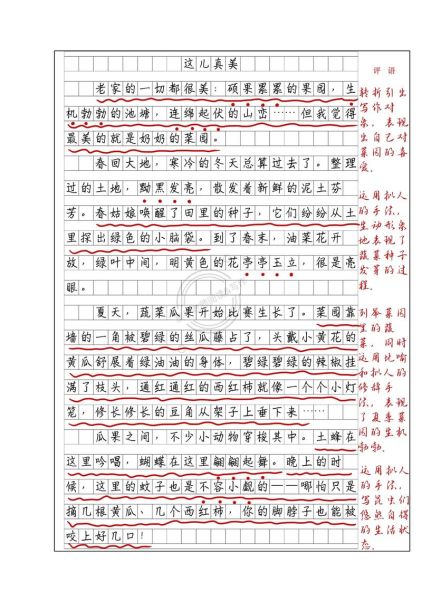 这儿真美
老家的一切都很美：硕果累累的果园，生
机勃勃的池塘，连绵起伏的山峦……但我觉得
最美的就是奶奶的菜园。
春回大地，寒冷的冬天总算过去了。整理
过的土地，黝黑发亮，散发着新鲜的泥土芬
芳。春姑娘唤醒了田里的种子，它们纷纷从土
里探出绿色的小脑袋。到了春末，油菜花开
放，绿叶中间，明黄色的花亭亭玉立，很是亮
眼。
夏天，蔬菜瓜果开始比赛生长了。菜园靠
墙的一角被碧绿的丝瓜藤占了，头戴小黄花的
黄瓜舒展着绿油油的身体，碧绿碧绿的辣椒挂
满了枝头，通红通红的西红柿就像一个个小灯
笼，修长修长的豆角从架子上垂下来……
瓜果之间，不少小动物穿梭其中。土蜂在
这里吟唱，蝴蝶在这里翩翩起舞。晚上的时
候，这里的蚊子也是不容小觑的——哪怕只是
摘几根黄瓜、几个西红柿，你的脚脖子也能被
咬上好几口！
评语
转折引出
写作对
象，表现
出自己对
菜园的喜
爱。
运用拟人
的手法，
生动形象
地表现了
蔬菜种子
发芽的过
程。
列举菜园
里的蔬
菜，同时
运用比喻
和拟人的
修辞手
法，表现
了夏季菜
园的生机
勃勃。
运用拟人
的手法，
写昆虫们
悠然自得
的生活状
态。